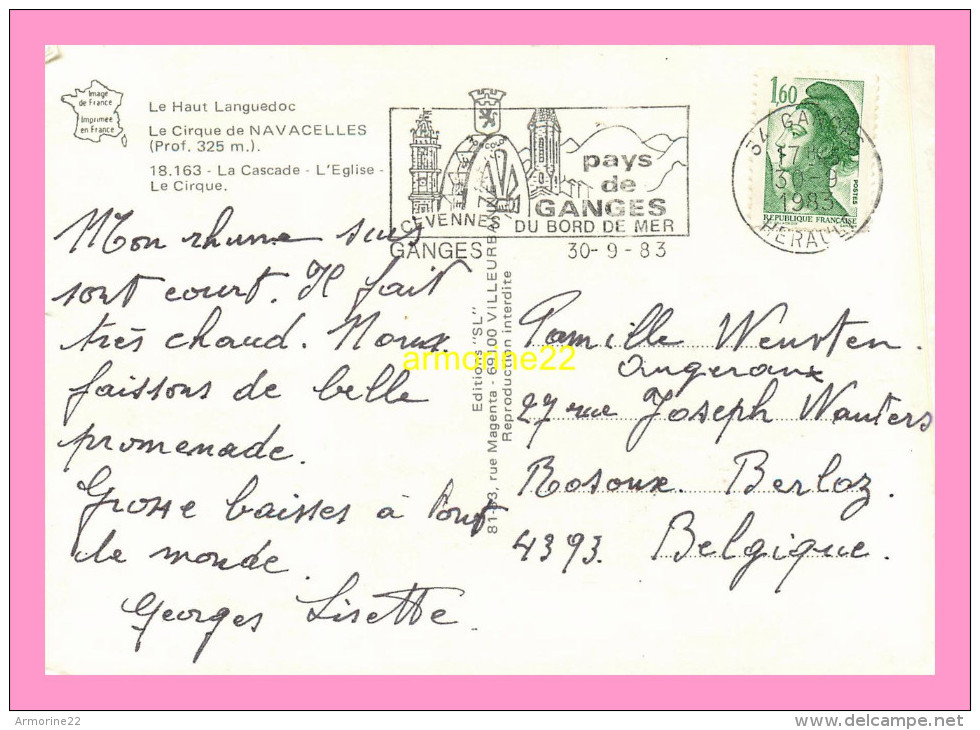 Image
de France
Imprimée
en France
Le Haut Languedoc
Le Cirque de NAVACELLES
(Prof. 325 m.).
18.163 - La Cascade - L'Eglise -
Le Cirque.
CEVENNES
pays
de
GANGES
DU BORD DE MER
GANGES
30-9-83
1,60
POSTES
REPUBLIQUE FRANÇAISE
34 GANGES
17
30-9
1983
HERAULT
Mon rhume suis
sont court. Il fait
très chaud. Nous
faissons de belle
promenade.
Grosse baisses à tout
le monde.
Georges Lisette.
Editions "SL"
81-83, rue Magenta - 69100 VILLEURBANNE
Reproduction interdite
armorine22
Famille Wensten.
Angeraux
27 rue Joseph Wauters
Rosoux. Berloz.
4393. Belgique.
Armorine22
www.delcampe.net